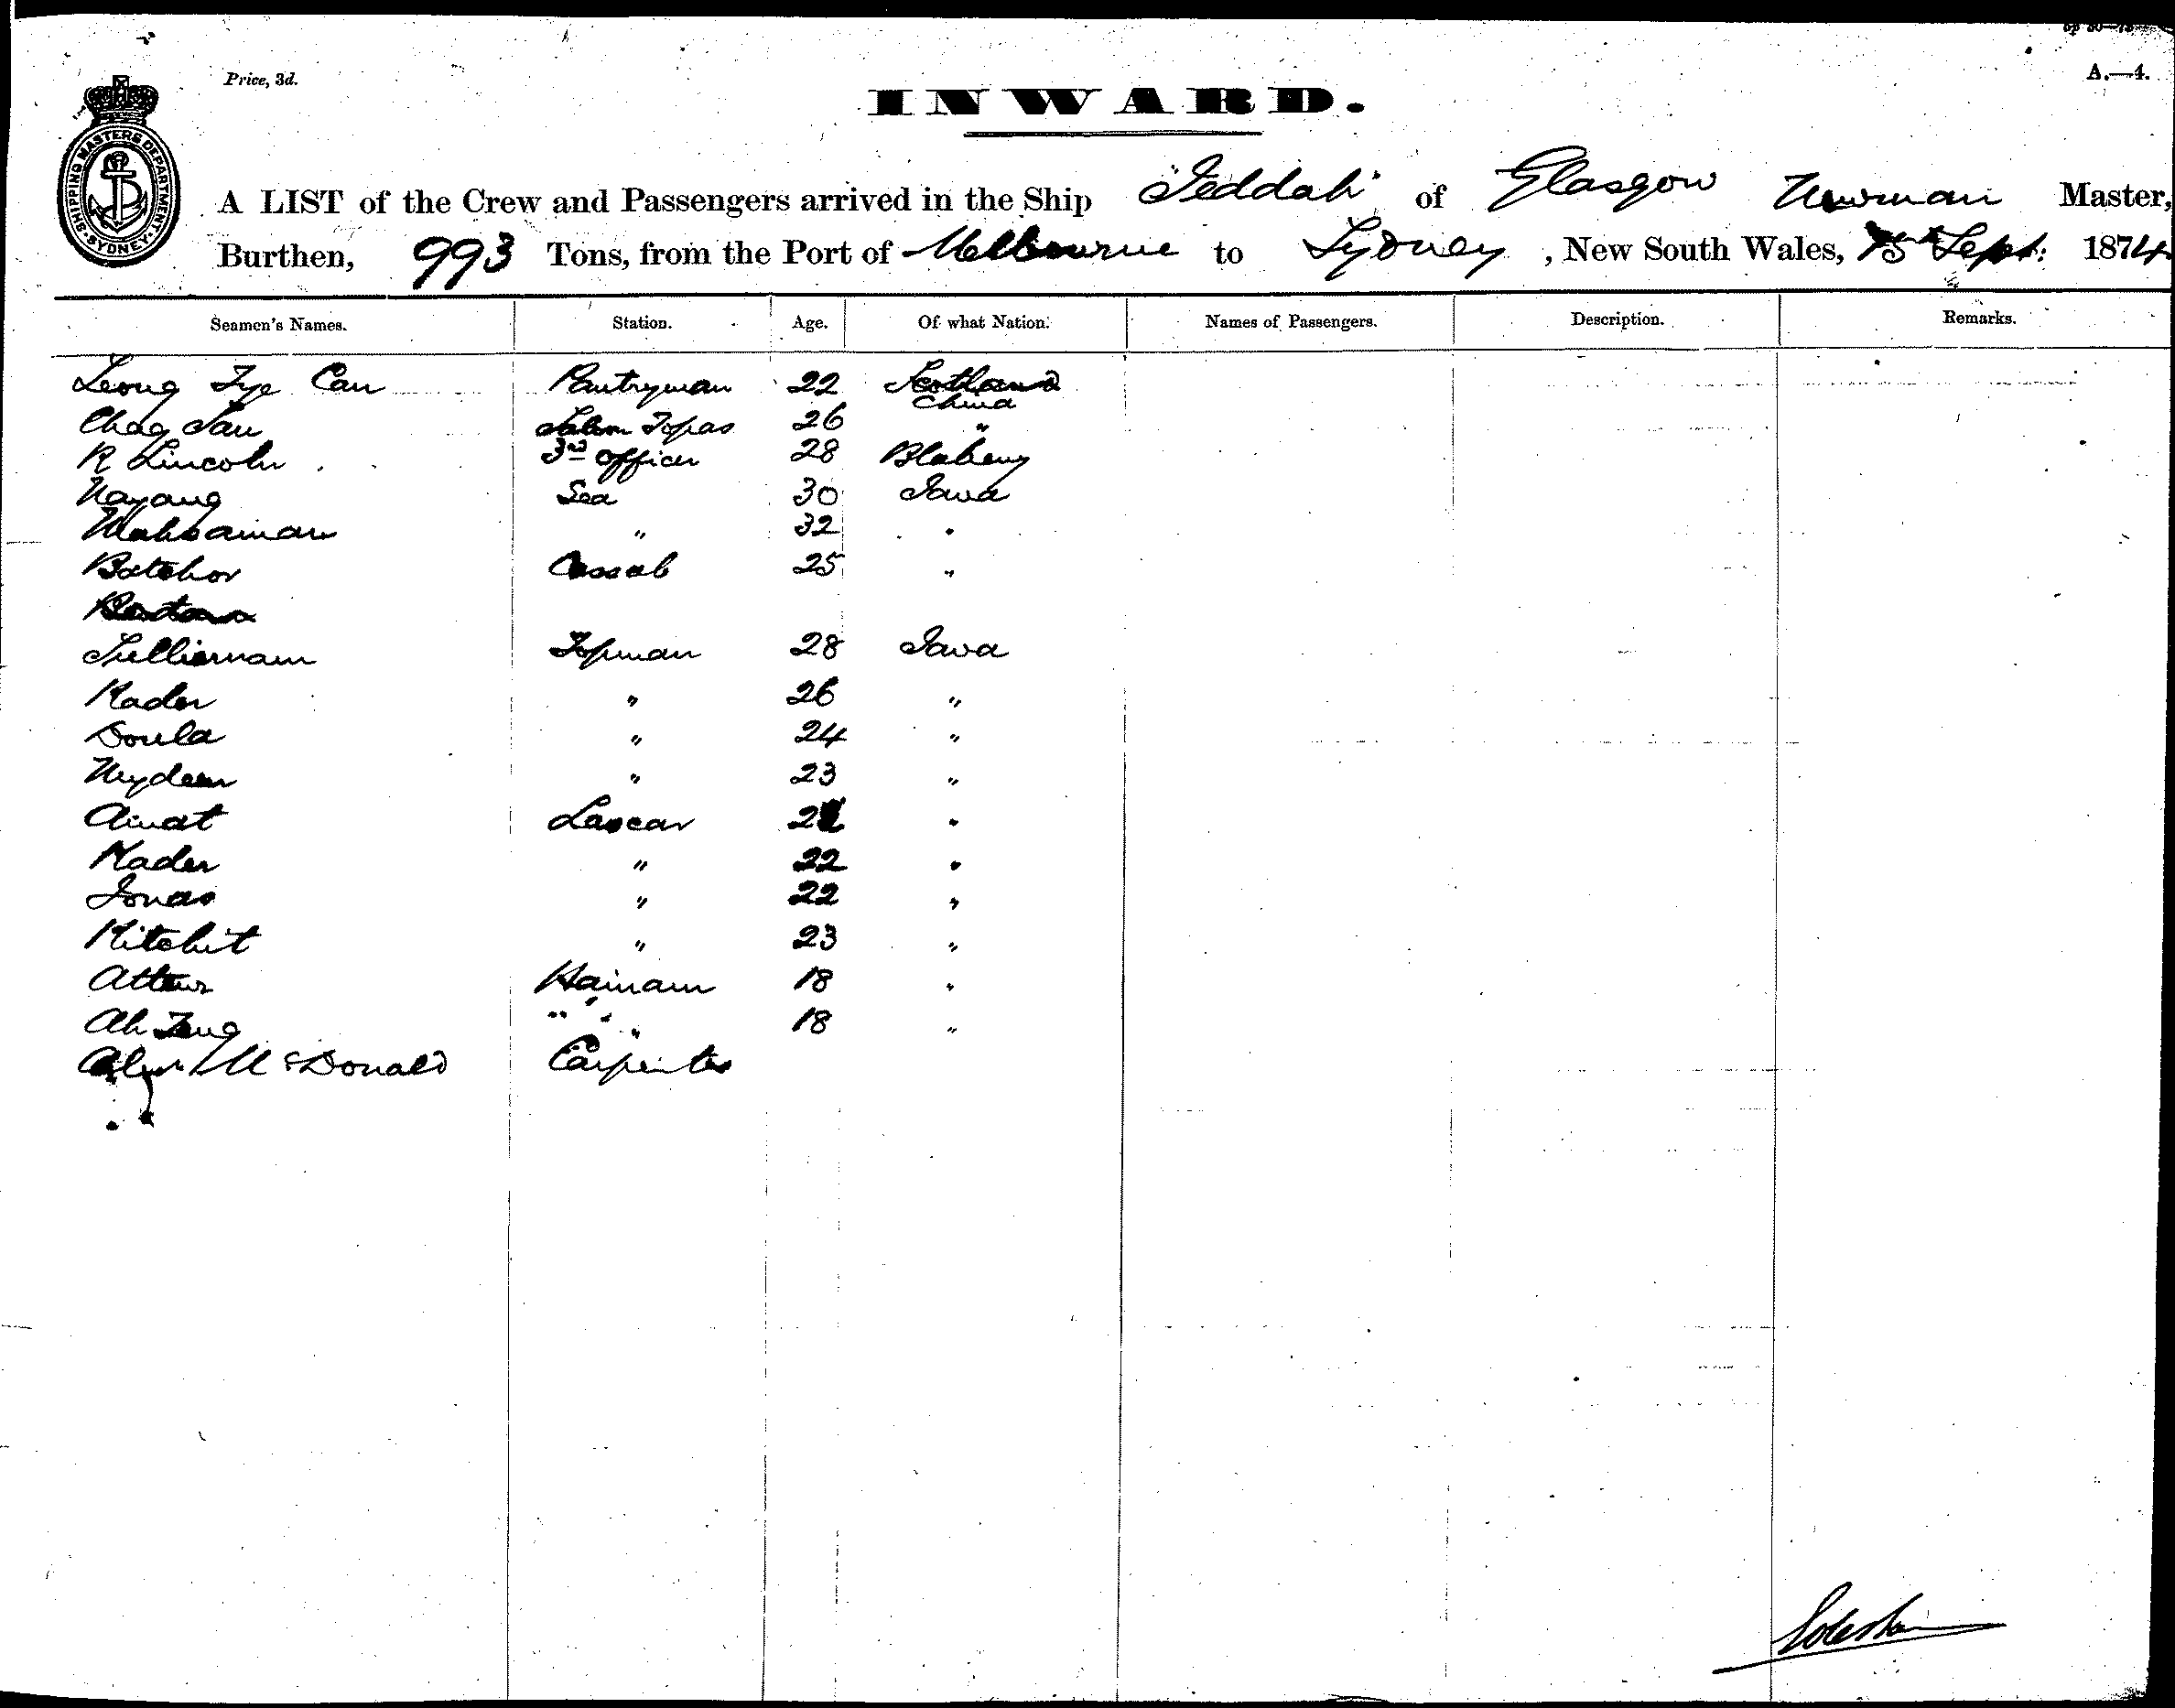 Price, 3d.
A.—4.
INWARD.
SHIPPING MASTERS DEPARTMENT. SYDNEY.
A LIST of the Crew and Passengers arrived in the Ship "Jeddah" of Glasgow Newman Master,
Burthen, 993 Tons, from the Port of Melbourne to Sydney, New South Wales, 15th Sept: 1874
Seamen's Names. Station. Age. Of what Nation. Names of Passengers. Description. Remarks.
Leong Tye Can Pantryman 22 Scotland China
Chag Sau Topas 26 "
R Lincoln 3rd Officer 28 Blakeny
Nayang Sea 30 Java
" 32 "
Batchor Cassab 25 "
Topman 28 Java
Kader " 26 "
Doula " 24 "
" 23 "
Amat Lascar 2 "
Kader " 22 "
Jonas " 22 "
Kitchit " 23 "
Hainam 18 "
Ah " 18 "
McDonald Carpenter